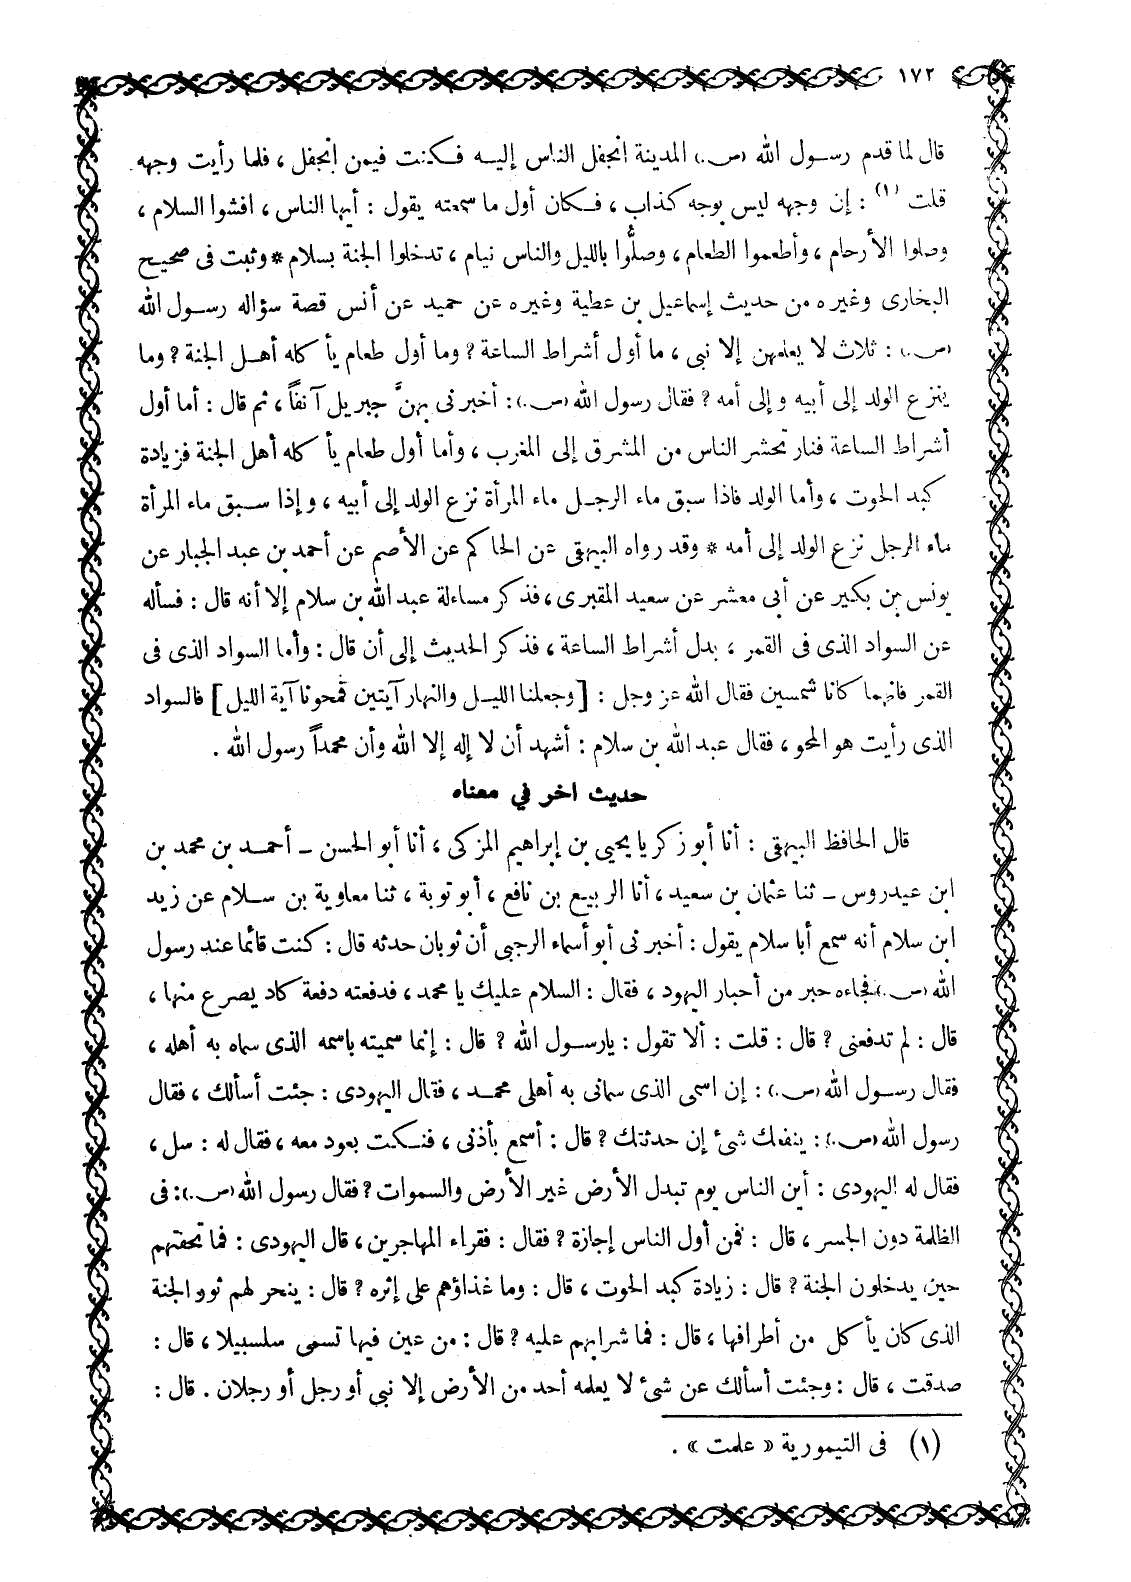 ١٧٢
قال لما قدم رسول الله (ص.) المدينة انجفل الناس إليه فكنت فيمن انجفل ، فلما رأيت وجهه
قلت (١) : إن وجهه ليس بوجه كذاب ، فكان أول ما سمعته يقول : أيها الناس ، افشوا السلام ،
وصلوا الأرحام ، وأطعموا الطعام ، وصلُّوا بالليل والناس نيام ، تدخلوا الجنة بسلام * وثبت فى صحيح
البخارى وغيره من حديث إسماعيل بن عطية وغيره عن حميد عن أنس قصة سؤاله رسول الله
(ص.) : ثلاث لا يعلمهن إلا نبى ، ما أول أشراط الساعة ؟ وما أول طعام يأكله أهل الجنة ؟ وما
ينزع الولد إلى أبيه وإلى أمه ؟ فقال رسول الله (ص.) : أخبرنى بهنَّ جبريل آنفاً ، ثم قال : أما أول
أشراط الساعة فنار تحشر الناس من المشرق إلى المغرب ، وأما أول طعام يأكله أهل الجنة فزيادة
كبد الحوت ، وأما الولد فاذا سبق ماء الرجل ماء المرأة نزع الولد إلى أبيه ، وإذا سبق ماء المرأة
ماء الرجل نزع الولد إلى أمه * وقد رواه البيهقى عن الحاكم عن الأصم عن أحمد بن عبد الجبار عن
يونس بن بكير عن أبى معشر عن سعيد المقبرى ، فذكر مساءلة عبد الله بن سلام إلا أنه قال : فسأله
عن السواد الذى فى القمر ، بدل أشراط الساعة ، فذكر الحديث إلى أن قال : وأما السواد الذى فى
القمر فانهما كانا شمسين فقال الله عز وجل : [وجعلنا الليل والنهار آيتين فمحونا آية الليل] فالسواد
الذى رأيت هو المحو ، فقال عبد الله بن سلام : أشهد أن لا إله إلا الله وأن محمداً رسول الله .
حديث اخر في معناه
قال الحافظ البيهقى : أنا أبو زكريا يحيى بن إبراهيم المزكى ، أنا أبو الحسن - أحمد بن محمد بن
ابن عيدروس - ثنا عثمان بن سعيد ، أنا الربيع بن نافع ، أبو توبة ، ثنا معاوية بن سلام عن زيد
ابن سلام أنه سمع أبا سلام يقول : أخبرنى أبو أسماء الرجبى أن ثوبان حدثه قال : كنت قائما عند رسول
الله (ص.) فجاءه حبر من أحبار اليهود ، فقال : السلام عليك يا محمد ، فدفعته دفعة كاد يصرع منها ،
قال : لم تدفعنى ؟ قال : قلت : ألا تقول : يا رسول الله ؟ قال : إنما سميته باسمه الذى سماه به أهله ،
فقال رسول الله (ص.) : إن اسمى الذى سمانى به أهلى محمد ، فقال اليهودى : جئت أسألك ، فقال
رسول الله (ص.) : ينفعك شئ إن حدثتك ؟ قال : أسمع بأذنى ، فنكت بعود معه ، فقال له : سل ،
فقال له اليهودى : أين الناس يوم تبدل الأرض غير الأرض والسموات ؟ فقال رسول الله (ص.) : فى
الظلمة دون الجسر ، قال : فمن أول الناس إجازة ؟ فقال : فقراء المهاجرين ، قال اليهودى : فما تحفتهم
حين يدخلون الجنة ؟ قال : زيادة كبد الحوت ، قال : وما غذاؤهم على إثره ؟ قال : ينحر لهم ثور الجنة
الذى كان يأكل من أطرافها ، قال : فما شرابهم عليه ؟ قال : من عين فيها تسمى سلسبيلا ، قال :
صدقت ، قال : وجئت أسألك عن شئ لا يعلمه أحد من الأرض إلا نبي أو رجل أو رجلان . قال :
(١) فى التيمورية « علمت » .